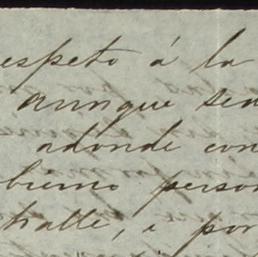 espeto á la
aunque sea
adonde con
bierno perso
halle, i por